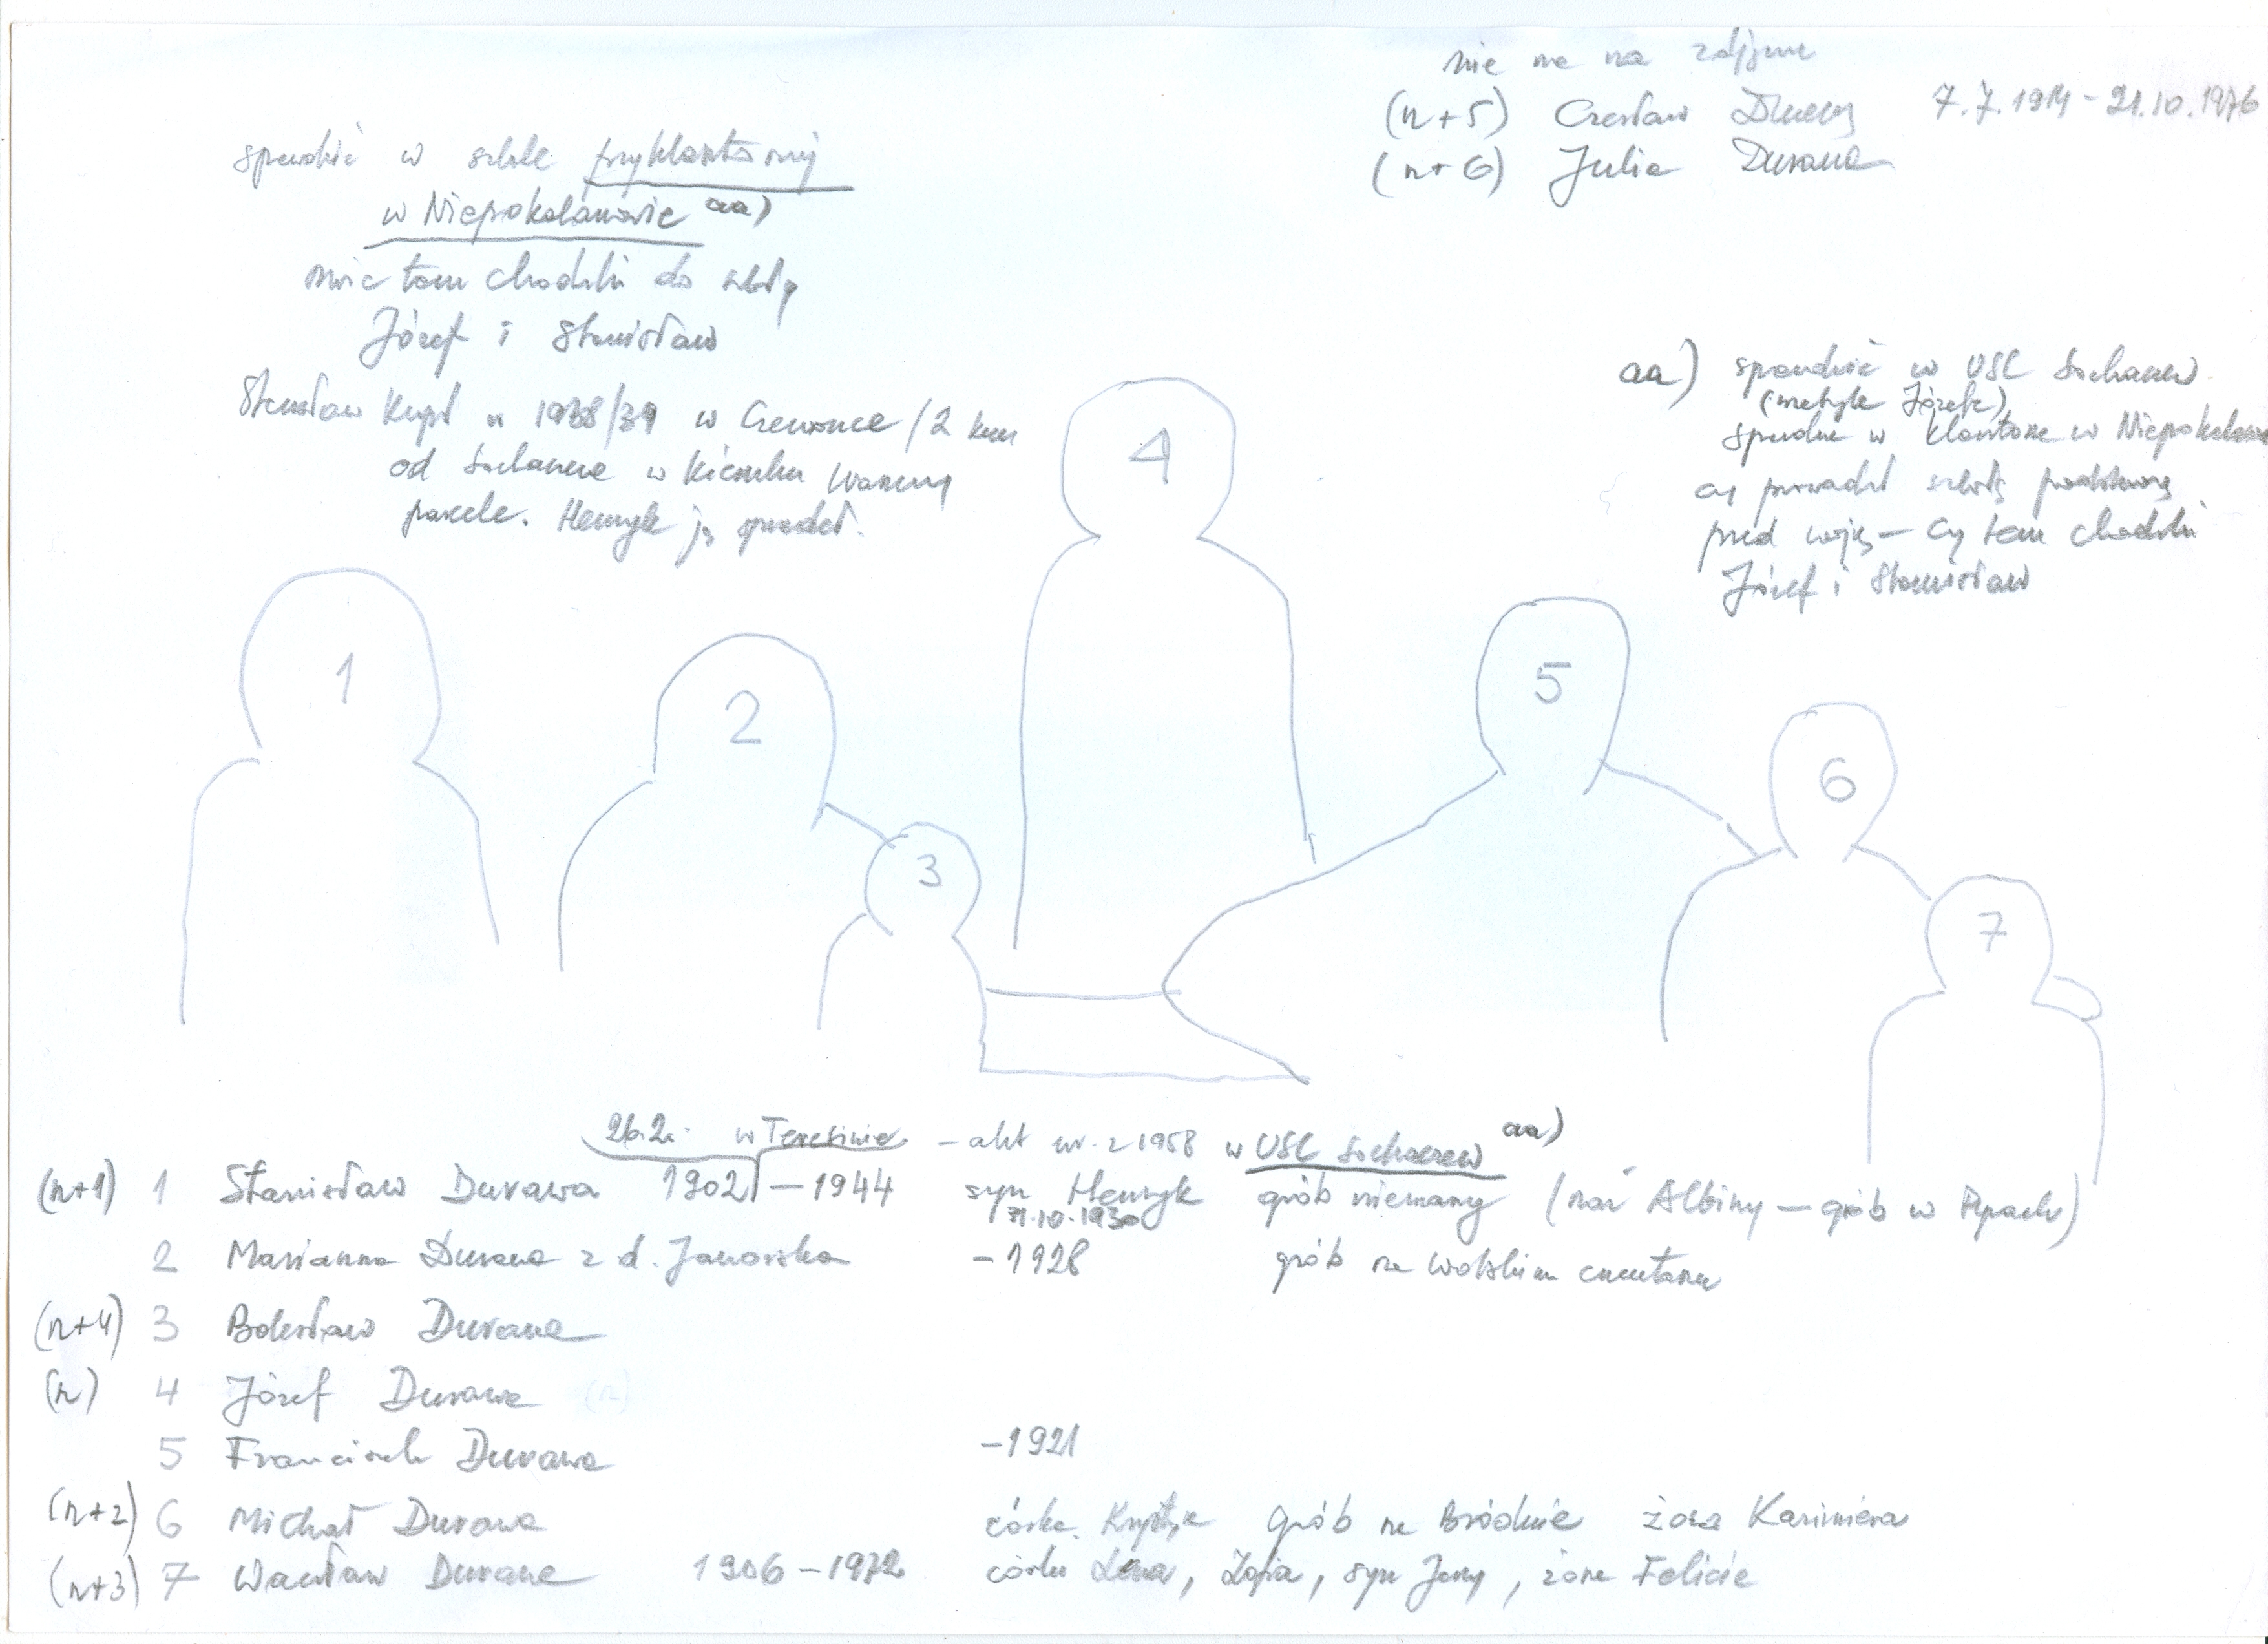 nie ma na zdjęciu
(n+5) Czesław Durawa 7.7.1914 - 21.10.1976
(n+6) Julia Durawa
sprawdzić w szkole przyklasztornej
w Niepokalanowie aa)
tam chodzili do szkoły
Józef i Stanisław
Stanisław kupił w 1938/39 w Czerwonce /2 km
od Sochaczewa w kierunku Warszawy
parcele. Henryk ją sprzedał.
aa) sprawdzić w USC Sochaczew
(metryka Józefa)
sprawdzić w klasztorze w Niepokalanowie
czy prowadził szkołę podstawową
przed wojną - czy tam chodzili
Józef i Stanisław
4
1
5
2
6
3
7
26.2. w Teresinie - akt ur. z 1958 w USC Sochaczew aa)
(n+1) 1 Stanisław Durawa 1902 - 1944 syn Henryk grób nieznany (mąż Albiny - grób w)
31.10.1930
2 Marianna Durawa z d. Janowska - 1928 grób na Wolskim cmentarzu
(n+4) 3 Bolesław Durawa
(n) 4 Józef Durawa (n)
5 Franciszek Durawa - 1921
(n+2) 6 Michał Durawa córka Krystyna grób na Bródnie żona Kazimiera
(n+3) 7 Wacław Durawa 1906 - 1972 córki Lena, Zofia, syn Jerzy, żona Felicia